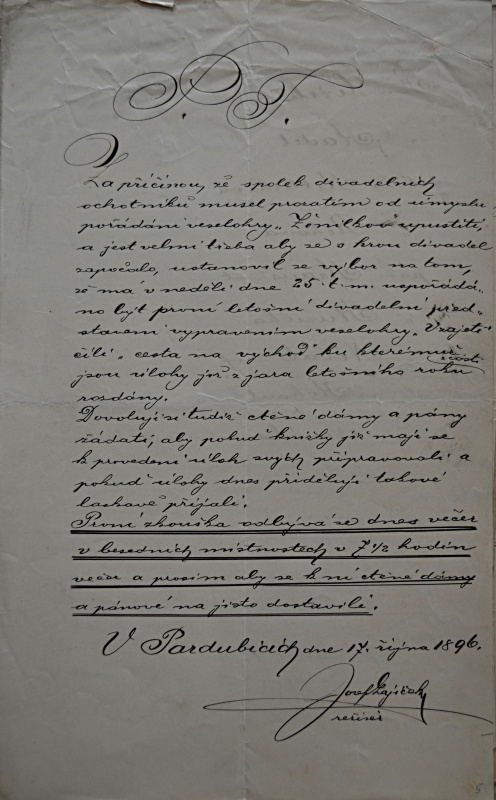 P. T.
Za příčinou, že spolek divadelních
ochotníků musel prozatím od úmyslu
pořádání veselohry „Ženilkové upustiti,
a jest velmi třeba aby se s hrou divadel
započalo, ustanovil se výbor na tom,
že má v neděli dne 25. t. m. uspořádá-
no být první letošní divadelní před-
stavení vypravením veselohry „V zajetí
čili „cesta na východ" ku kterémuž
jsou úlohy již z jara letošního roku
z části
rozdány.
Dovoluji si tudíž ctěné dámy a pány
žádati, aby pokud knížky již mají se
k provedení úloh svých připravovali a
pokud úlohy dnes přiděluji takové
laskavě přijali.
První zkouška odbývá se dnes večer
v besedních místnostech v 7 1/2 hodin
večer a prosím aby se k ní ctěné dámy
a pánové na jisto dostavili.
V Pardubicích dne 17. října 1896.
Josef Zajíček
režisér
5